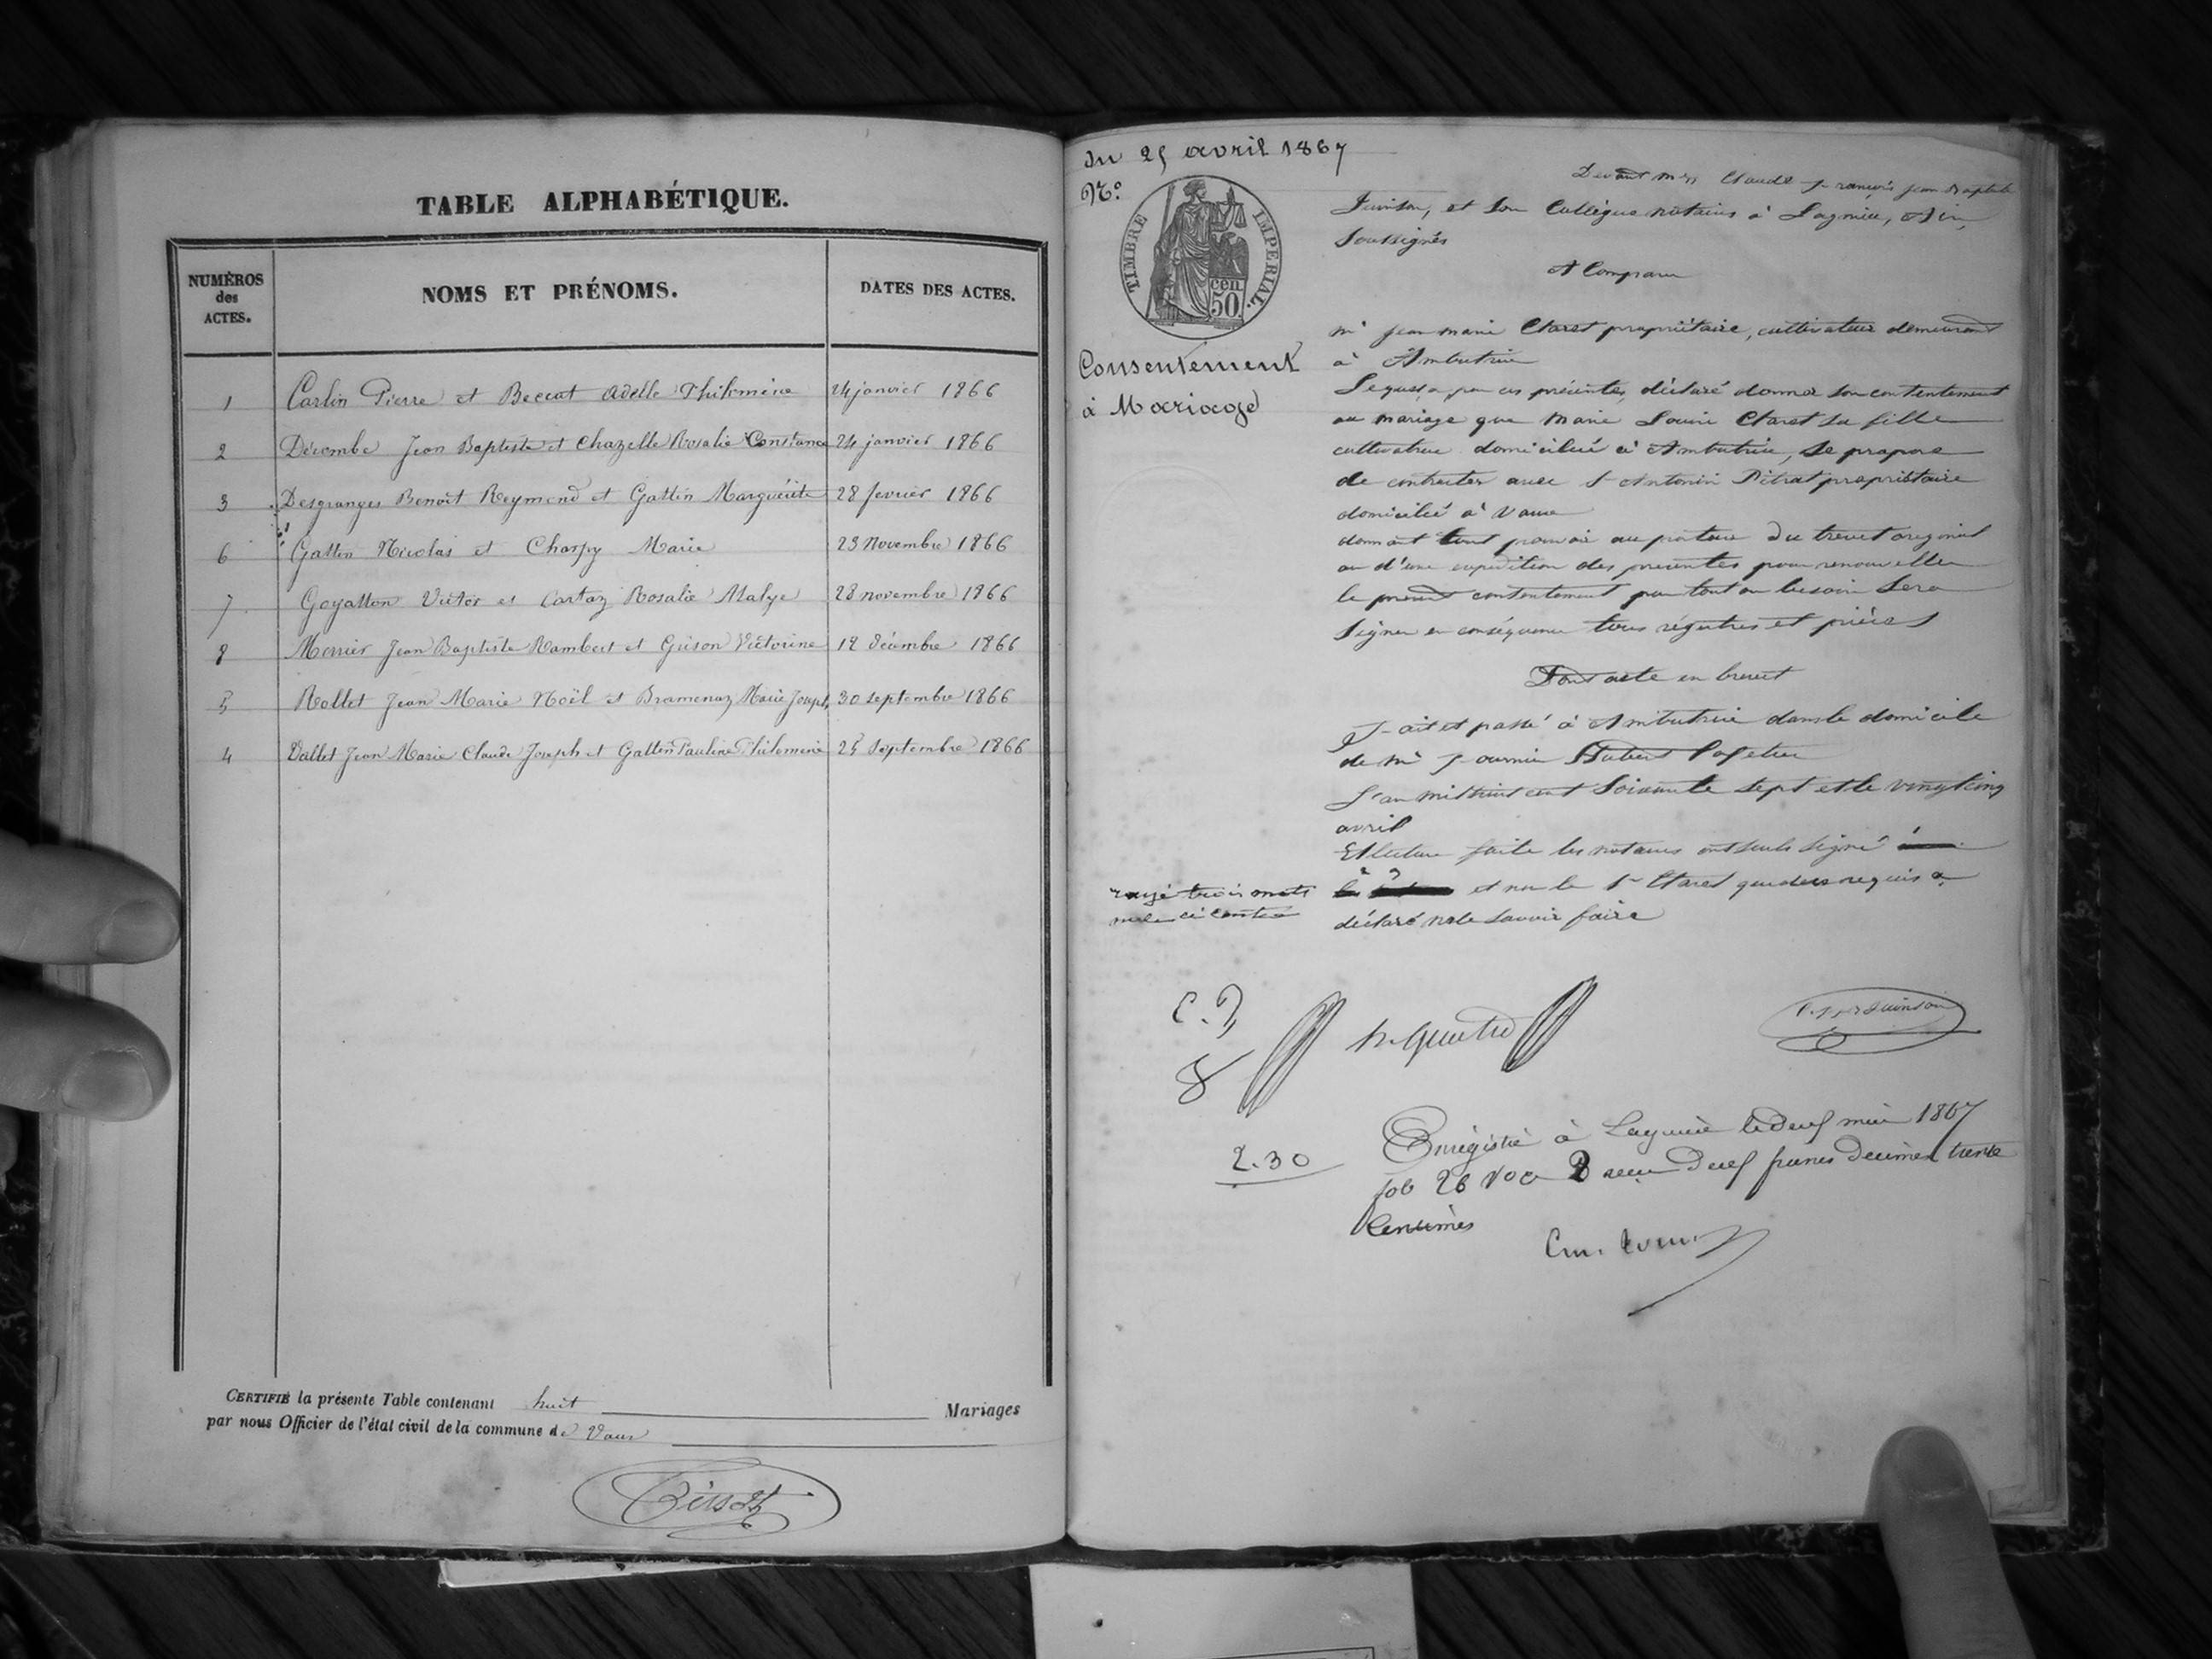 TABLE ALPHABÉTIQUE.
NUMÉROS des ACTES.
NOMS ET PRÉNOMS.
DATES DES ACTES.
1 Carlin Pierre et Beccat Adelle Philomène 24 janvier 1866
2 Décombe Jean Baptiste et Chazelle Rosalie Constance 24 janvier 1866
3 Desgranges Benoit Reymond et Gallin Marguérite 28 fevrier 1866
6 Gallin Nicolas et Charpy Marie 23 Novembre 1866
7 Goyatton Victor et Cartaz Rosalie 28 novembre 1866
8 Jean Baptiste Rambert et Grison Victorine 12 Décembre 1866
5 Rollet Jean Marie Noël et Bramenaz Marie Joseph 30 septembre 1866
4 Vallet Jean Marie Claude Joseph et Gallin Pauline Philomène 25 septembre 1866
CERTIFIÉ la présente Table contenant huit Mariages
par nous Officier de l'état civil de la commune de Vaux
du 25 avril 1867
N.°
TIMBRE IMPÉRIAL.
50 cen
Consentement
à Mariage
Devant Claude François Jean Baptiste
et son Collègue notaires à Lagnieu, Ain,
soussignés
A Comparu
mr Jean marie Claret propriétaire, cultivateur demeurant
à Ambutrix
Lequel a par ces présentes, déclaré donner son contentement
au mariage que Marie Louise Claret sa fille
cultivatrice domiciliée à Ambutrix, se propose
de contracter avec Sr Antonin Pitrat propriétaire
domicilié à Vaux
donnant tout pouvoir au porteur du brevet original
ou d'une expédition des présentes pour renouveller
le présent contentement partout où besoin sera
signer en conséquence tous régistres et pièces
Dont acte en brevet
Fait et passé à Ambutrix dans le domicile
de mr Fournier
L'an mil huit cent soixante sept et le vingt cinq
avril
Et lecture faite les notaires ont seuls signé
et non le Sr Claret qui de ce requis a
déclaré ne le savoir faire
rayé trois mots
nuls ci contre
2.30
Enrégistré à Lagnieu le deux mai 1867
fol 26 Vo C 8 reçu deux francs décimes trente
Centimes